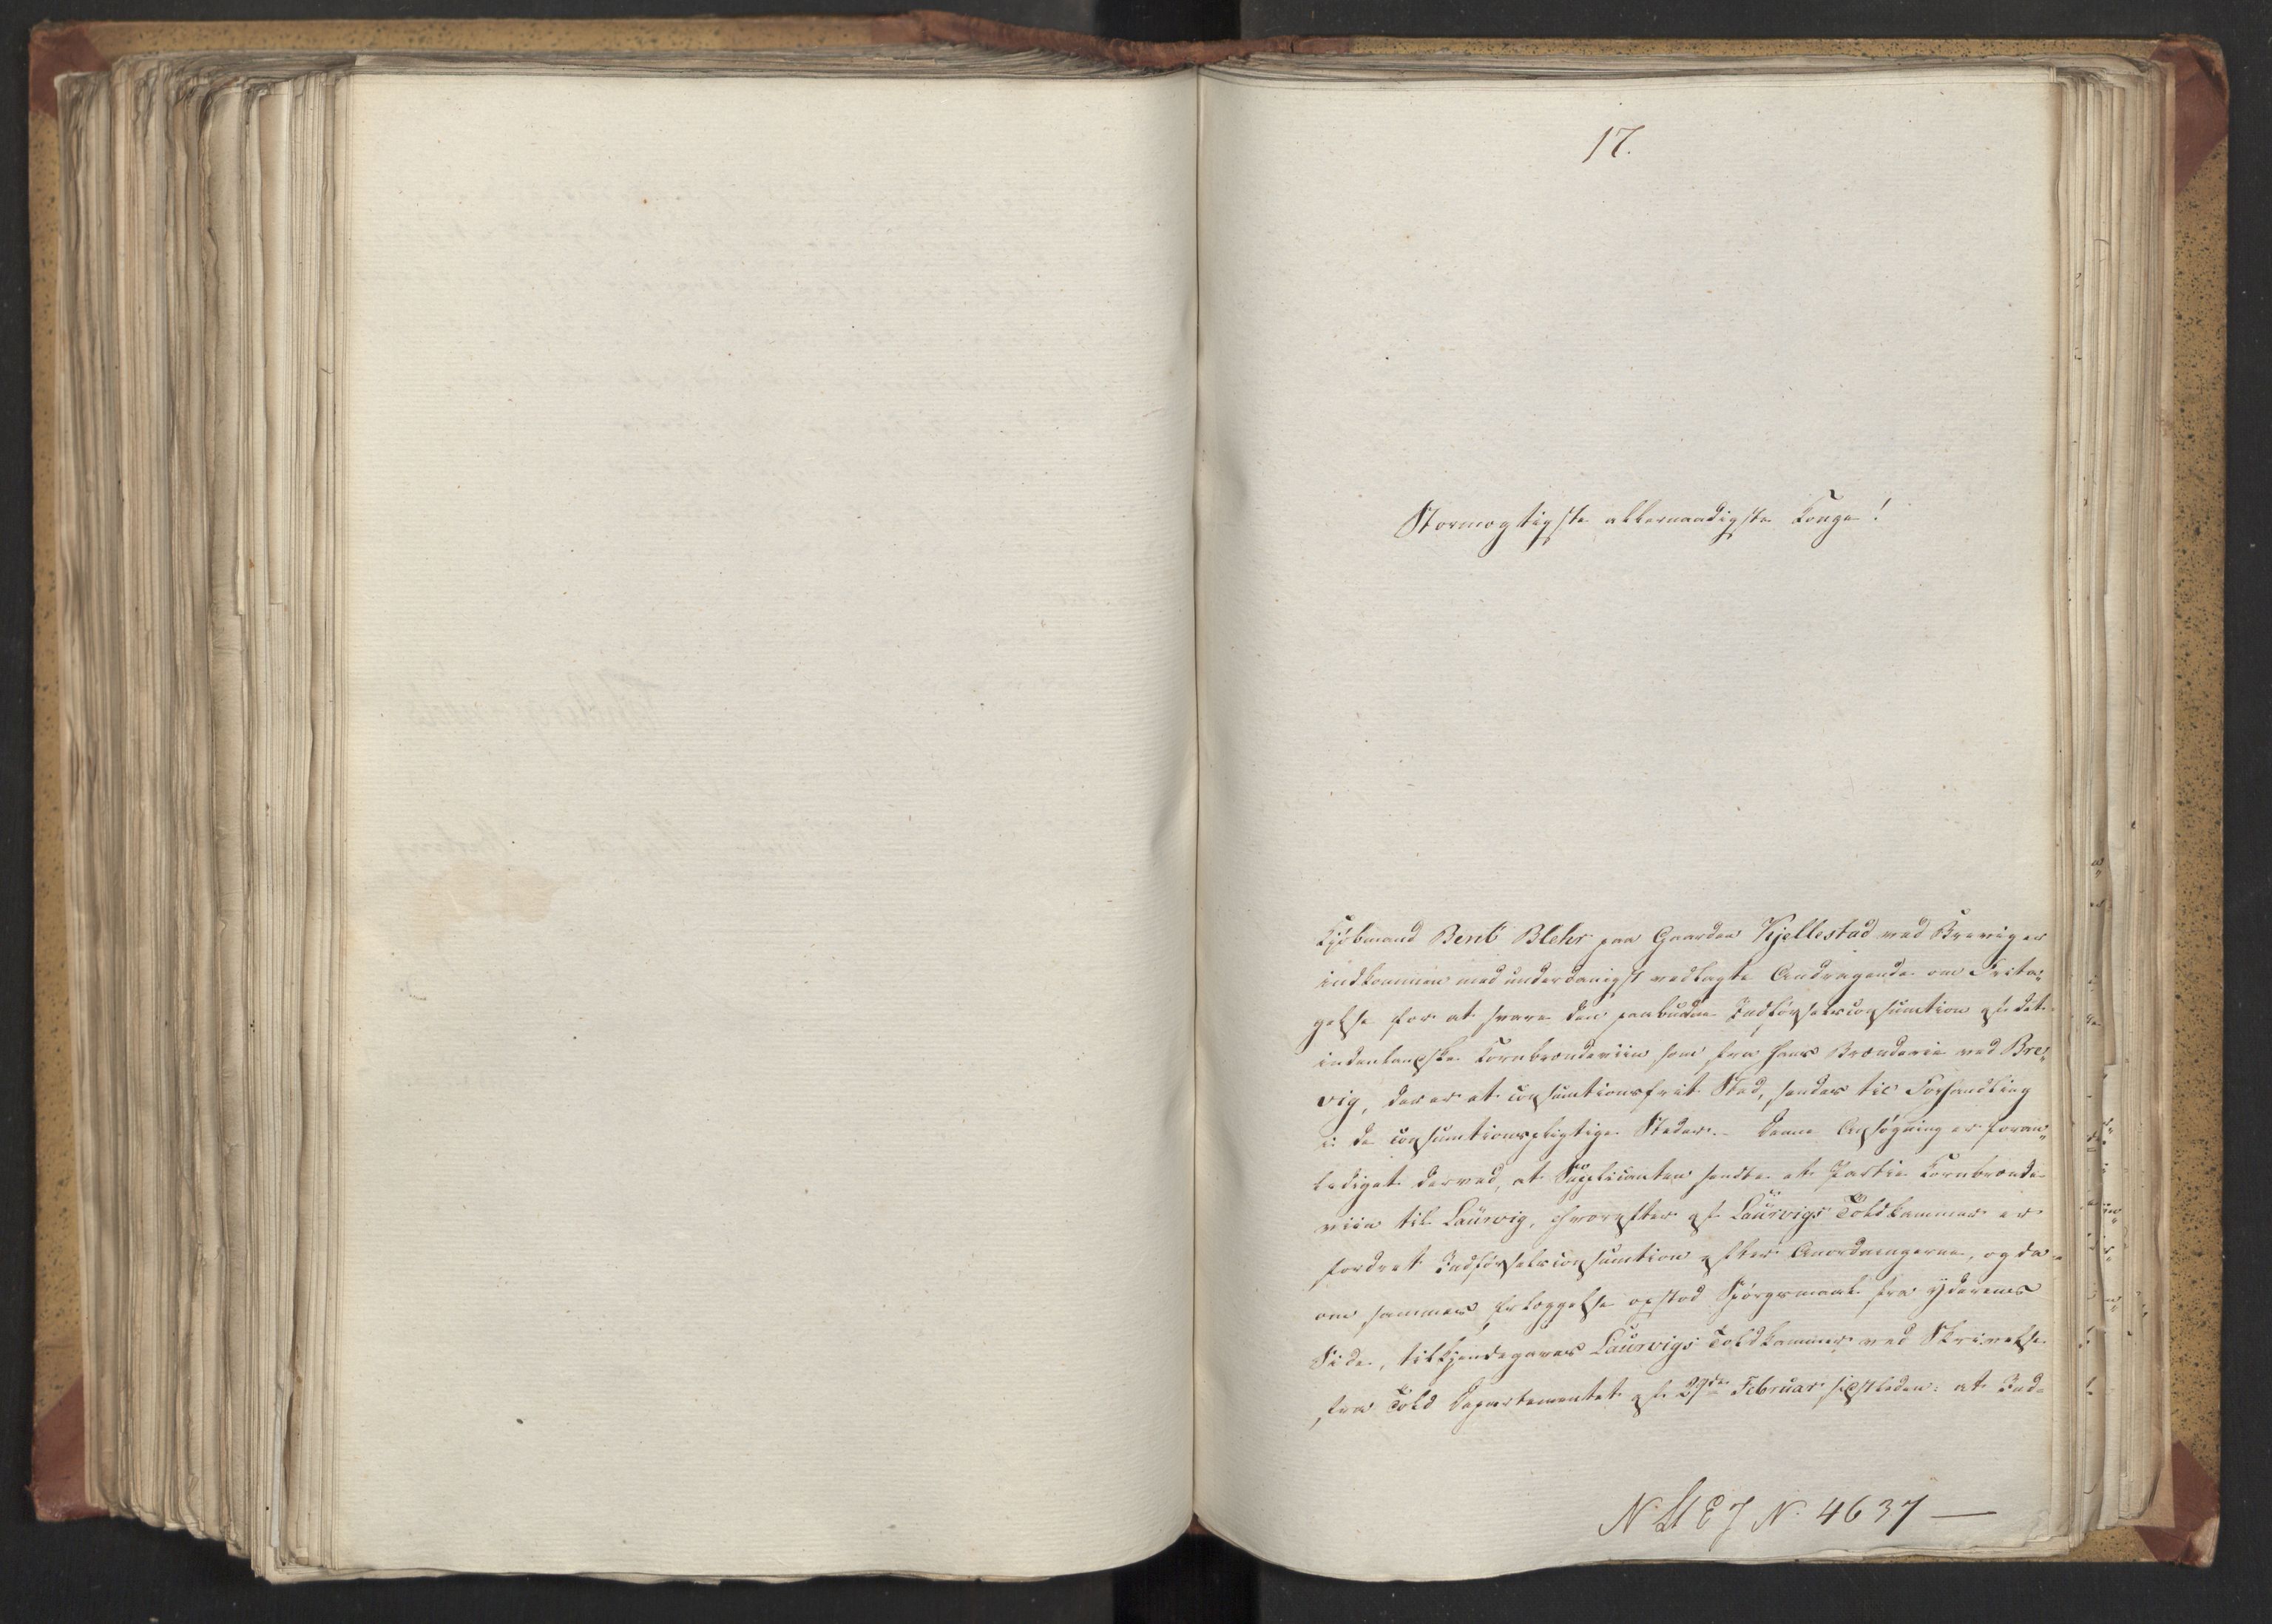 17.
Stormægtigste allernaadigste Konge!
Kjøbmand Bent Blehr paa Gaarden Kjellestad ved Brevig er
indkommen med underdanigst vedlagte Andragende om Frita„
gelse for at svare den paabudne Indførselsconsumtion af det
indenlandske Kornbrændeviin som fra hans Brænderie ved Bre„
vig, der er et consumtionsfrit Sted, sendes til Forhandling
i de consumtionspligtige Steder. Denne Ansøgning er foran„
lediget derved, at Supplicanten sendte et Partie Kornbrænde
viin til Laurvig, hvorefter af Laurvigs Toldkammer er
fordret Indførselsconsumtion efter Anordningerne, og da
om sammes Erlæggelse opstod Spørgsmaal fra Yderens
Side, tilkjendegaves Laurvigs Toldkammer ved Skrivelse
fra Told Departementet af 29de Februar sidstleden: at Ind-
N. St E J N. 4637 —